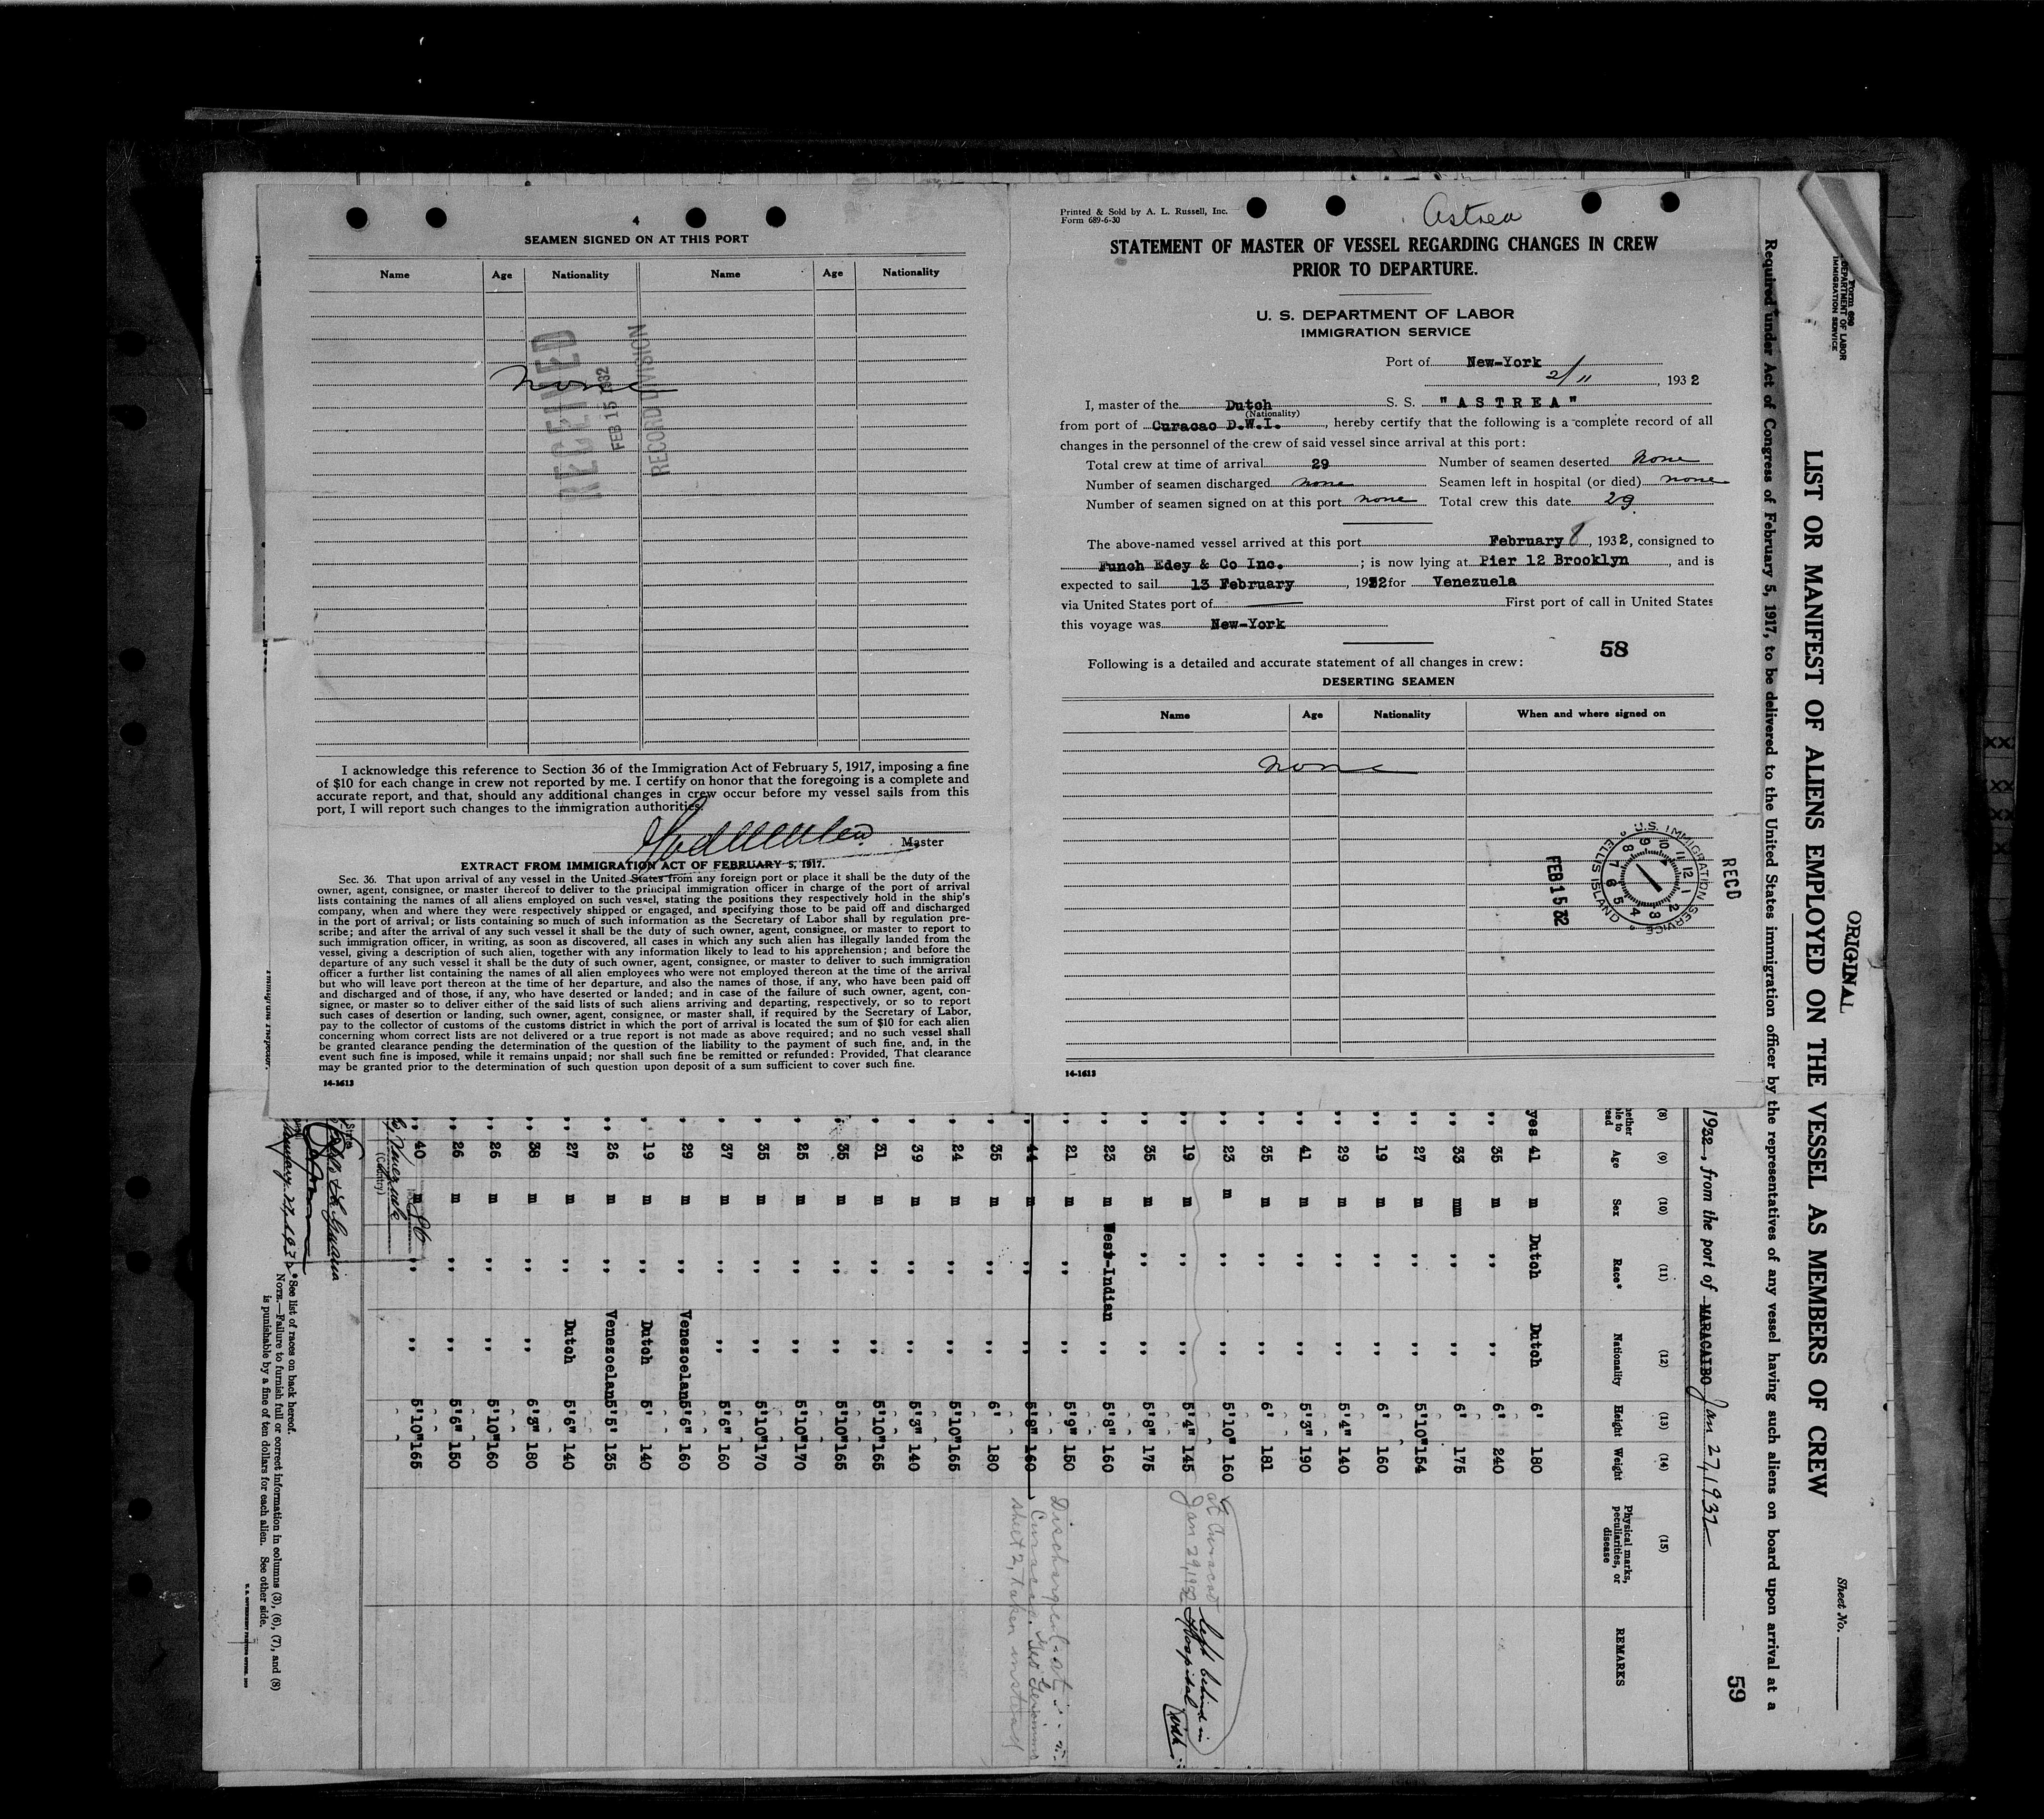 4
SEAMEN SIGNED ON AT THIS PORT
Name Age Nationality Name Age Nationality
none
RECEIVED
FEB 15 1932
RECORD DIVISION
I acknowledge this reference to Section 36 of the Immigration Act of February 5, 1917, imposing a fine
of $10 for each change in crew not reported by me. I certify on honor that the foregoing is a complete and
accurate report, and that, should any additional changes in crew occur before my vessel sails from this
port, I will report such changes to the immigration authorities.
Master
EXTRACT FROM IMMIGRATION ACT OF FEBRUARY 5, 1917.
Sec. 36. That upon arrival of any vessel in the United States from any foreign port or place it shall be the duty of the
owner, agent, consignee, or master thereof to deliver to the principal immigration officer in charge of the port of arrival
lists containing the names of all aliens employed on such vessel, stating the positions they respectively hold in the ship's
company, when and where they were respectively shipped or engaged, and specifying those to be paid off and discharged
in the port of arrival; or lists containing so much of such information as the Secretary of Labor shall by regulation pre-
scribe; and after the arrival of any such vessel it shall be the duty of such owner, agent, consignee, or master to report to
such immigration officer, in writing, as soon as discovered, all cases in which any such alien has illegally landed from the
vessel, giving a description of such alien, together with any information likely to lead to his apprehension; and before the
departure of any such vessel it shall be the duty of such owner, agent, consignee, or master to deliver to such immigration
officer a further list containing the names of all alien employees who were not employed thereon at the time of the arrival
but who will leave port thereon at the time of her departure, and also the names of those, if any, who have been paid off
and discharged and of those, if any, who have deserted or landed; and in case of the failure of such owner, agent, con-
signee, or master so to deliver either of the said lists of such aliens arriving and departing, respectively, or so to report
such cases of desertion or landing, such owner, agent, consignee, or master shall, if required by the Secretary of Labor,
pay to the collector of customs of the customs district in which the port of arrival is located the sum of $10 for each alien
concerning whom correct lists are not delivered or a true report is not made as above required; and no such vessel shall
be granted clearance pending the determination of the question of the liability to the payment of such fine, and, in the
event such fine is imposed, while it remains unpaid; nor shall such fine be remitted or refunded: Provided, That clearance
may be granted prior to the determination of such question upon deposit of a sum sufficient to cover such fine.
14-1613
Printed & Sold by A. L. Russell, Inc.
Form 689-6-30
Astrea
STATEMENT OF MASTER OF VESSEL REGARDING CHANGES IN CREW
PRIOR TO DEPARTURE.
U. S. DEPARTMENT OF LABOR
IMMIGRATION SERVICE
Port of New-York
2/11, 1932
I, master of the Dutch S. S. "ASTREA"
(Nationality)
from port of Curacao D.W.I., hereby certify that the following is a complete record of all
changes in the personnel of the crew of said vessel since arrival at this port:
Total crew at time of arrival 29 Number of seamen deserted none
Number of seamen discharged none Seamen left in hospital (or died) none
Number of seamen signed on at this port none Total crew this date 29.
The above-named vessel arrived at this port February 8, 1932, consigned to
Funch Edey & Co Inc. ; is now lying at Pier 12 Brooklyn, and is
expected to sail 13 February, 1932 for Venezuela
via United States port of First port of call in United States
this voyage was New-York
58
Following is a detailed and accurate statement of all changes in crew:
DESERTING SEAMEN
Name Age Nationality When and where signed on
none
U.S. IMMIGRATION SERVICE
ELLIS ISLAND
RECD
FEB 15 32
14-1613
Form 689
DEPARTMENT OF LABOR
IMMIGRATION SERVICE
ORIGINAL
Sheet No.
LIST OR MANIFEST OF ALIENS EMPLOYED ON THE VESSEL AS MEMBERS OF CREW
Required under Act of Congress of February 5, 1917, to be delivered to the United States immigration officer by the representatives of any vessel having such aliens on board upon arrival at a
59
1932, from the port of MARACAIBO Jan 27, 1932
(8) (9) (10) (11) (12) (13) (14) (15)
Age Sex Race* Nationality Height Weight Physical marks, peculiarities, or disease REMARKS
yes 41 m Dutch Dutch 6' 180
,, 35 m ,, ,, 6' 240
,, 33 mm ,, ,, 6' 175
,, 27 m ,, ,, 5'10" 154
,, 19 m ,, ,, 6' 160
,, 29 m ,, ,, 5'4" 140
,, 41 m ,, ,, 5'3" 190
,, 35 m ,, ,, 6' 181
,, 23 m ,, ,, 5'10" 160 at Curacao left behind in
,, 19 m ,, ,, 5'4" 145 Jan 29, 1932 Hospital
,, 35 m ,, ,, 5'8" 175
,, 23 m West-Indian ,, 5'8" 160
,, 21 m ,, ,, 5'9" 150 Discharged at
,, 44 m ,, ,, 5'8" 160 Curacao.
sheet 2, taken instead
,, 35 m ,, ,, 6' 180
,, 24 m ,, ,, 5'10" 165
,, 39 m ,, ,, 5'3" 140
,, 31 m ,, ,, 5'10" 165
,, 35 m ,, ,, 5'10" 165
,, 25 m ,, ,, 5'10" 170
,, 35 m ,, ,, 5'10" 170
,, 37 m ,, ,, 5'6" 160
,, 29 m ,, Venezoelan 5'6" 160
,, 19 m ,, Dutch 5' 140
,, 26 m ,, Venezoelan 5'5' 135
,, 27 m ,, Dutch 5'6" 140
,, 38 m ,, ,, 6'3" 180
,, 26 m ,, ,, 5'10" 160
,, 26 m ,, ,, 5'6" 150
,, 40 m ,, ,, 5'10" 165
(Country)
*See list of races on back hereof.
NOTE.—Failure to furnish full or correct information in columns (3), (6), (7), and (8)
is punishable by a fine of ten dollars for each alien. See other side.
Immigrant Inspector.